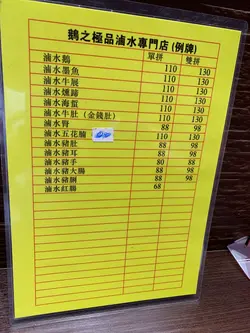 鵝之極品滷水專門店(例牌)
單拼 雙拼
滷水鵝 110 130
滷水墨魚 110 130
滷水牛展 110 130
滷水燻蹄 110 130
滷水海蜇 110 130
滷水牛肚(金錢肚) 110 130
滷水腎 88 98
滷水五花腩 110 130
滷水豬肚 88 98
滷水豬耳 88 98
滷水豬手 80 88
滷水豬大腸 88 98
滷水豬脷 88 98
滷水紅腸 68